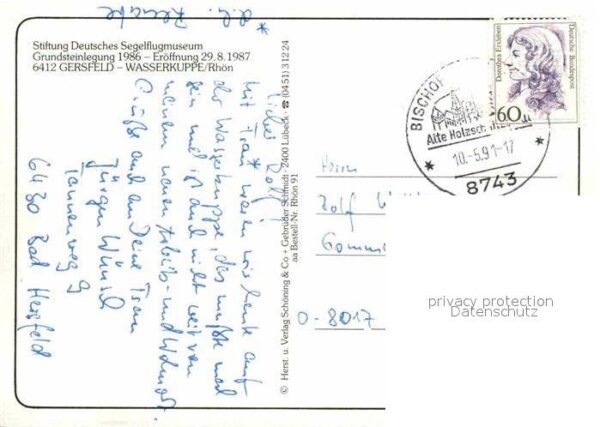 Stiftung Deutsches Segelflugmuseum
Grundsteinlegung 1986 – Eröffnung 29.8.1987
6412 GERSFELD – WASSERKUPPE/Rhön
Lieber Rolf!
mit Frau waren wir heute auf
der Wasserkuppe, das mußte mal
sein und ist auch nicht weit von
meinem neuen Arbeits- und Wohnort.
Grüße auch an Deine Frau
Jürgen
Tannenweg 9
6430 Bad Hersfeld
© Herst. u. Verlag Schöning & Co + Gebrüder Schmidt · 2400 Lübeck · ☎ (0451) 31224
aa Bestell-Nr. Rhön 91
Dorothea Erxleben
Deutsche Bundespost
60
BISCHOF
Alte Holzsch
10.-5.91-17
8743
Herrn
Rolf
O-8017
privacy protection
Datenschutz